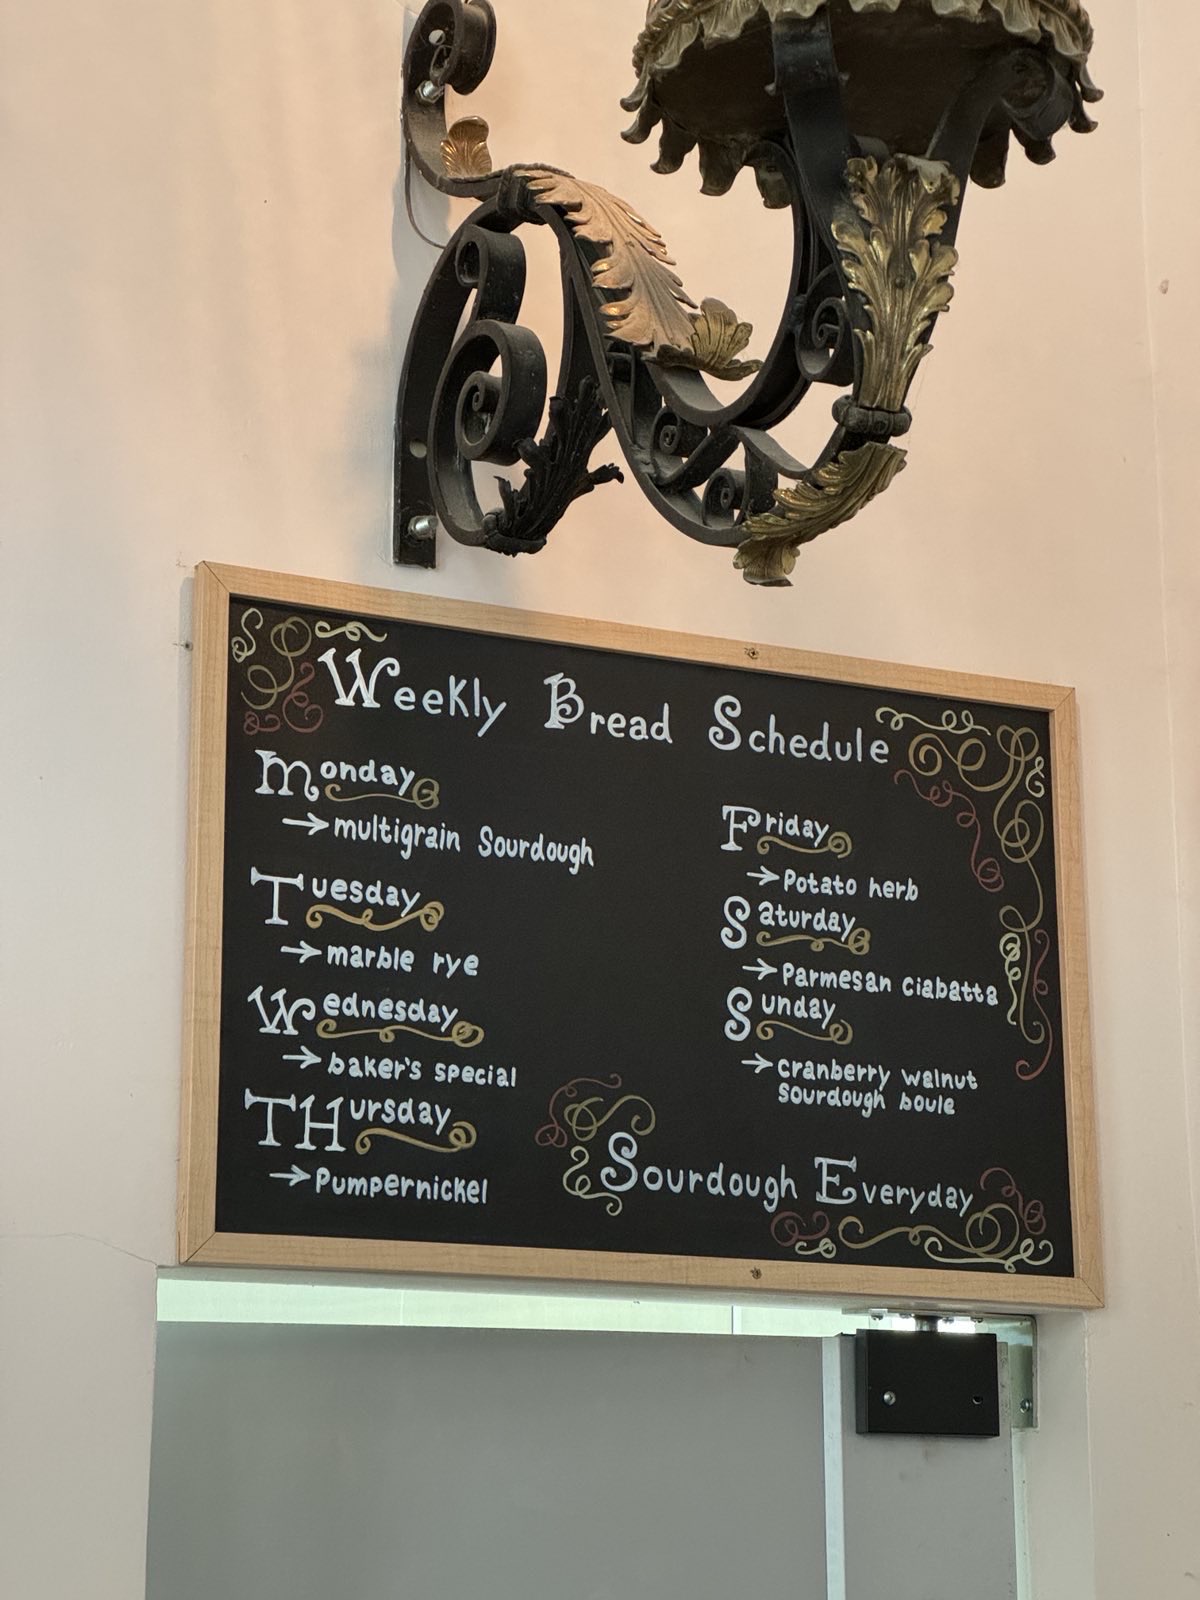 Weekly Bread Schedule
Monday
→ multigrain Sourdough
Tuesday
→ marble rye
Wednesday
→ baker's special
THursday
→ Pumpernickel
Friday
→ Potato herb
Saturday
→ Parmesan ciabatta
Sunday
→ cranberry walnut
sourdough boule
Sourdough Everyday